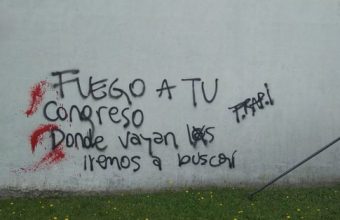 FUEGO A TU
CONGRESO
Donde vayan los
iremos a buscar